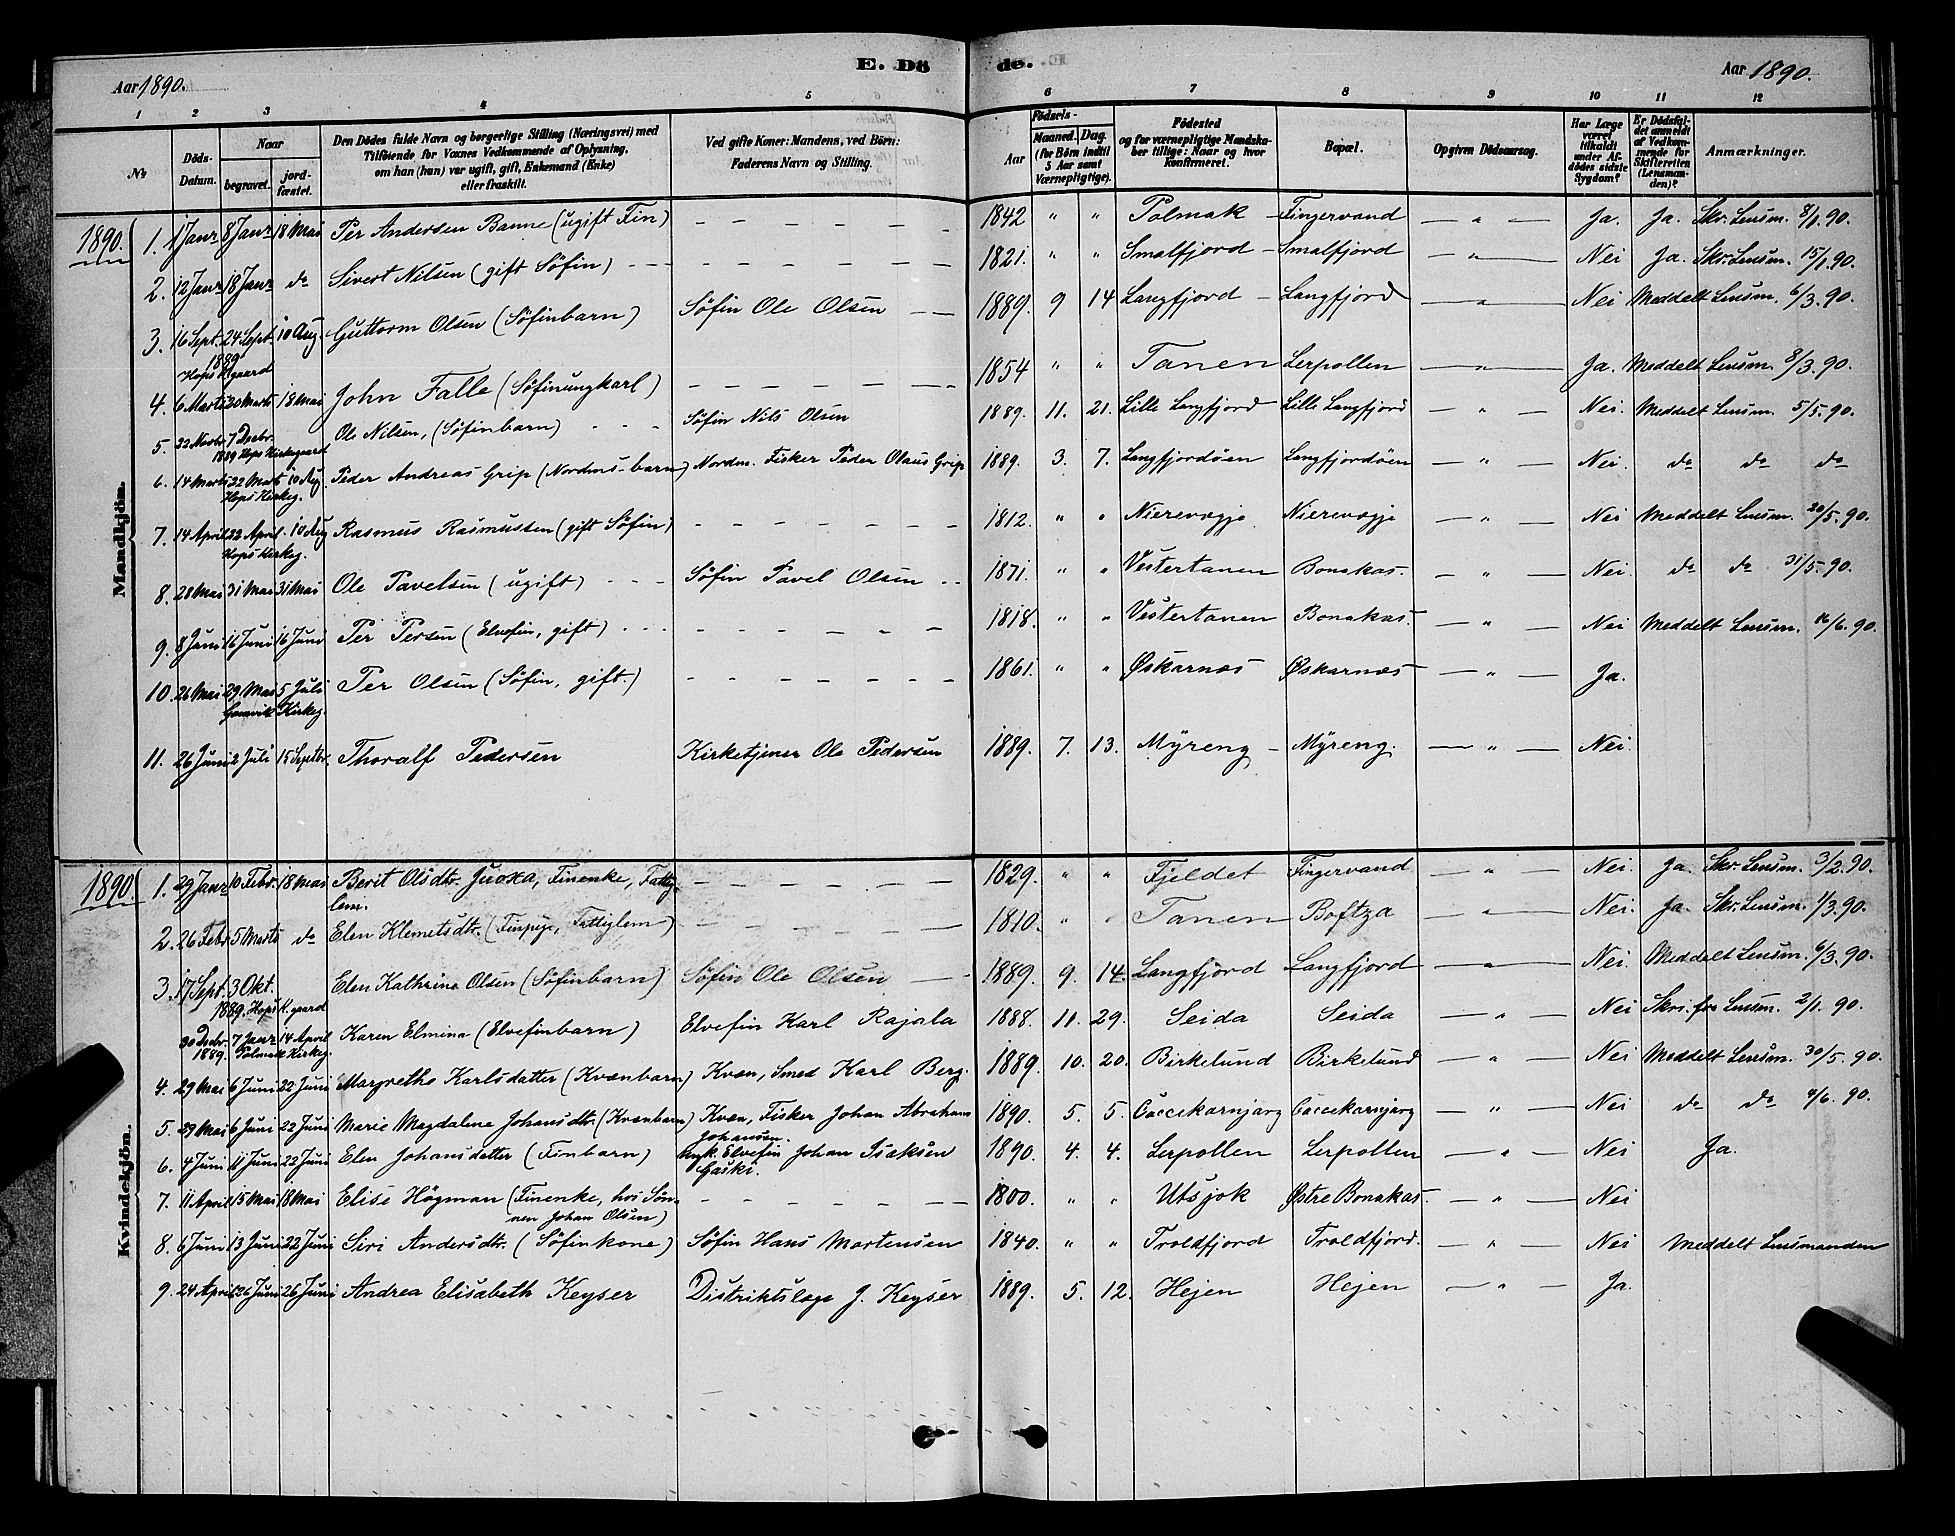 Aar 1890. E. Dö de. Aar 1890.
1 2 3 4 5 6 7 8 9 10 11 12
№ Döds-Datum. Naar begravet. jord-fæstet. Den Dödes fulde Navn og borgerlige Stilling (Næringsvei) med Tilföiende for Voxnes Vedkommende af Oplysning, om han (hun) var ugift, gift, Enkemand (Enke) eller fraskilt. Ved gifte Koner: Mandens, ved Börn: Faderens Navn og Stilling. Födsels- Aar Maaned. Dag. (for Börn indtil 5 Aar samt Værnepligtige). Födested og for værnepligtige Mandskaber tillige: Naar og hvor konfirmeret. Bopæl. Opgiven Dödsaarsag. Har Læge været tilkaldt under Afdödes sidste Sygdom? Er Dödsfaldet anmeldt af Vedkommende for Skifteretten (Lensmanden)? Anmærkninger.
Mandkjön.
1890. 1. 1 Janr 8 Janr 18 Mai Per Andersen Banne (ugift Fin) – – – – – 1842 " " Polmak – Fingervand — " — Ja. Ja. Skr. Lensm. 8/1.90.
2. 12 Janr 18 Janr do Sivert Nilsen (gift Söfin) – – – – – – 1821. " " Smalfjord – Smalfjord — " — Nei Ja. Skr. Lensm. 15/1.90.
3. 16 Sept. 24 Sept. 10 Aug. Guttorm Olsen (Söfinbarn) Söfin Ole Olsen — 1889. 9 14 Langfjord – Langfjord — " — Nei Meddelt Lensm. 6/3.90.
1889 Hops K.gaard
4. 6 Marts 20 Marts 18 Mai John Falle (Söfinungkarl) – – – – – – 1854 " " Tanen Lerpollen — " — Ja. Meddelt Lensm. 8/3.90.
5. 22 Novbr. 7 Decbr. Ole Nilsen, (Söfinbarn) – – – Söfin Nils Olsen 1889. 11. 21. Lille Langfjord Lille Langfjord — " — Nei. Meddelt Lensm. 5/5.90.
1889 Hops Kirkegaard
6. 14 Marts 22 Marts 10 Aug. Peder Andreas Grip (Nordms-barn) Nordm. Fisker Peder Olaus Grip 1889. 3. 7. Langfjordöen Langfjordöen — " — Nei. do do do
Hops Kirkeg.
7. 14 April 22 April. 10 Aug Rasmus Rasmussen (gift Söfin) – – – – – – 1812. " " Nierevægje Nierevægje — " — Nei Meddelt Lensm. 20/5.90.
Hops Kirkeg.
8. 28 Mai 31 Mai 31 Mai Ole Pavelsen (ugift) – – – Söfin Pavel Olsen – – 1871. " " Vestertanen Bonakas. — " — Nei. do do 31/5.90.
9. 8 Juni 16 Juni 16 Juni Per Persen (Elvefin, gift) – – – – – – – – 1818. " " Vestertanen Bonakas. — " — Nei Meddelt Lensm. 16/6.90.
10. 26 Mai 29 Mai 5 Juli Per Olsen (Söfin, gift.) – – – – – – 1861. " " Øskarnæs Øskarnæs — " — Ja.
Gamvik Kirkeg.
11. 26 Juni 2 Juli 15 Septbr. Thoralf Pedersen Kirketjener Ole Pedersen 1889. 7. 13. Mÿreng – Mÿreng. — " — Nei.
Kvindekjön.
1890. 1. 29 Janr 10 Febr. 18 Mai Berit Olsdtr. Juoxa, Finenke, Fattig- – – – – – – 1829. " " Fjeldet Fingervand — " — Nei. Ja. Skr. Lensm. 3/2.90.
lem.
2. 26 Febr 5 Marts do Elen Klemetsdtr. (Finpige, Fattiglem) – – – – – – 1810. " " Tanen Boftza — " — Nei. Ja. Skr. Lensm. 1/3.90.
3. 17 Sept. 3 Okt. Elen Kathrina Olsen (Söfinbarn) Söfin Ole Olsen — 1889. 9. 14. Langfjord Langfjord — " — Nei. Meddelt Lensm. 6/3.90.
1889. Hops K.gaard
30 Decbr. 7 Janr 14 April Karen Elmina (Elvefinbarn) Elvefin Karl Rajala 1888. 11. 29. Seida Seida — " — Nei Skr. fra Lensm. 2/1.90.
1889. Polmak Kirkeg.
4. 29 Mai 6 Juni 22 Juni Margrethe Karlsdatter (Kvænbarn) Kvæn, Smed Karl Berg. 1889. 10. 20. Birkelund Birkelund — " — Nei Meddelt Lensm. 30/5.90.
5. 29 Mai 6 Juni 22 Juni Marie Magdalena Johansdtr. (Kvænbarn) Kvæn, Fisker Johan Abraham 1890. 5. 5. Caccekarnjarg Caccekarnjarg — " — Nei do do 4/6.90.
Johansen.
6. 4 Juni 11 Juni 22 Juni Elen Johansdatter (Finbarn) Elvefin Johan Isaksen 1890. 4. 4. Lerpollen Lerpollen — " — Nei Ja.
Gaski.
7. 11 April 15 Mai 18 Mai Elise Högman (Finenke, hos Søn- – – – – – – 1800. " " Utsjok Østre Bonakas. — " — Nei
nen Johan Olsen)
8. 6 Juni 13 Juni 22 Juni Siri Andersdtr. (Söfinkone) Söfin Hans Mortensen 1840. " " Troldfjord Troldfjord. — " — Nei Meddelt Lensmanden
9. 24 April 26 Juni 26 Juni Andrea Elisabeth Keyser Distriktslæge J. Keyser 1889. 5. 12. Hejen Hejen — " — Ja.